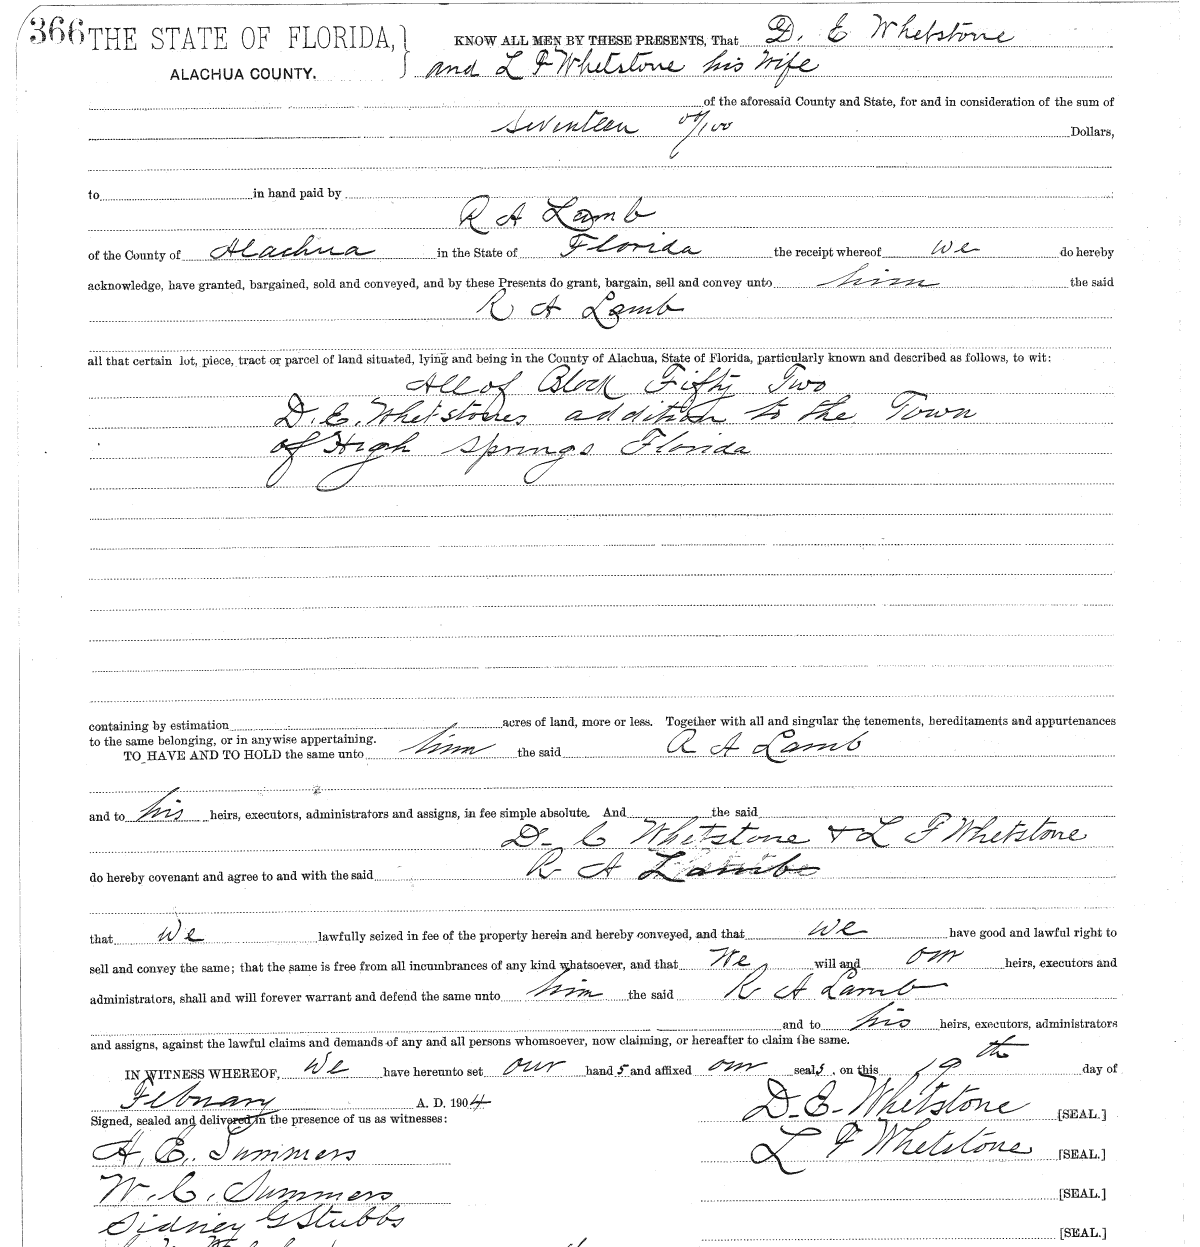 366 THE STATE OF FLORIDA, KNOW ALL MEN BY THESE PRESENTS, That D. E Whetstone
ALACHUA COUNTY. and L F Whetstone his Wife
of the aforesaid County and State, for and in consideration of the sum of
Seventeen 00/100 Dollars,
to in hand paid by
R A Lamb
of the County of Alachua in the State of Florida the receipt whereof we do hereby
acknowledge, have granted, bargained, sold and conveyed, and by these Presents do grant, bargain, sell and convey unto him the said
R A Lamb
all that certain lot, piece, tract or parcel of land situated, lying and being in the County of Alachua, State of Florida, particularly known and described as follows, to wit:
All of Block Fifty Two
D. E. Whetstones addition to the Town
of High Springs Florida
containing by estimation acres of land, more or less. Together with all and singular the tenements, hereditaments and appurtenances
to the same belonging, or in anywise appertaining.
TO HAVE AND TO HOLD the same unto him the said R A Lamb
and to his heirs, executors, administrators and assigns, in fee simple absolute. And the said
D- E Whetstone & L F Whetstone
do hereby covenant and agree to and with the said R A Lamb
that we lawfully seized in fee of the property herein and hereby conveyed, and that we have good and lawful right to
sell and convey the same; that the same is free from all incumbrances of any kind whatsoever, and that We will and our heirs, executors and
administrators, shall and will forever warrant and defend the same unto him the said R A Lamb
and to his heirs, executors, administrators
and assigns, against the lawful claims and demands of any and all persons whomsoever, now claiming, or hereafter to claim the same.
IN WITNESS WHEREOF, We have hereunto set our hands and affixed our seals, on this 19th day of
Febuary A. D. 1904
Signed, sealed and delivered in the presence of us as witnesses: D-E-Whetstone [SEAL.]
H. E. Summers L F Whetstone [SEAL.]
W. C. Summers [SEAL.]
Sidney G Stubbs [SEAL.]